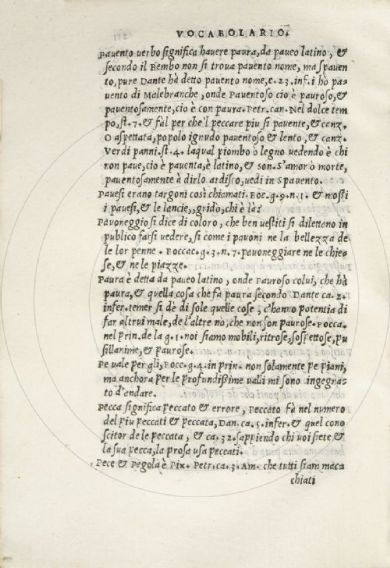 VOCABOLARIO.
Pavento verbo significa havere paura, da paveo latino, &
secondo il Bembo non si trova pavento nome, ma spaven
to, pure Dante hà detto pavento nome, c. 23. inf. i hò pa=
vento di Malebranche, onde Paventoso cio è pauroso, &
paventosamente, cio è con paura. Petr. can. Nel dolce tem
po, st. 7. & fal per che'l peccare piu si pavente, & canz.
O aspettata, popolo ignudo paventoso & lento, & canz.
Verdi panni. st. 4. laqual piombo ò legno vedendo è chi
non pave, cio è paventa, è latino, & son. S'amor ò morte,
paventosamente à dirlo ardisco, vedi in Spavento.
Pavesi erano targoni così chiamati. Boc. g. 9. n. 1. & mossi
i pavesi, & le lancie,,gridò, chi è là?
Pavoneggio si dice di coloro, che ben vestiti si dilettano in
publico farsi vedere, si come i pavoni ne la bellezza de
le lor penne. Boccac. g. 3. n. 7. pavoneggiare ne le chie=
se, & ne le piazze.
Paura è detta da paveo latino, onde Pauroso colui, che hà
paura, & quella cosa che fà paura secondo Dante ca. 2.
infer. temer si de di sole quelle cose, c'hanno potentia di
far altrui male, de l'altre nò, che non son paurose. Bocca.
nel prin. de la g. 1. noi siamo mobili, ritrose, sospettose, pu
sillanime, & paurose.
Pe vale per gli, Bocc. g. 4. in prin. non solamente pe piani,
ma anchora per le profundissime valli mi sono ingegna=
to d'andare.
Pecca significa peccato & errore, peccato fà nel numero
del piu peccati & peccata, Dan. ca. 5. infer. & quel cono
scitor de le peccata, & ca. 32. sappiendo chi voi siete &
la sua pecca, la prosa usa peccati.
Pece & Pegola è Pix. Petr. ca. 3. Am. che tutti siam maca
chiati